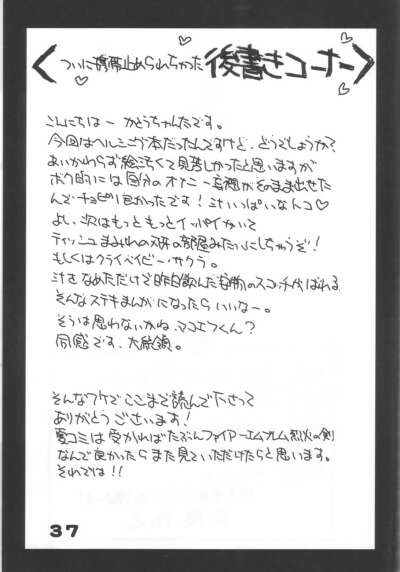 ついに携帯止められちゃった 後書きコーナー
こんにちはー かとうちゃんたです。
今回は 本だったんですけど、どうでしょうか?
あいかわらず絵汚くて見苦しかったと思いますが
ボク的には自分のオナニー妄想がそのまま出せた
んでチョピリ良かったです! 汁いっぱいなトコ♡
よし、次はもっともっとイッパイかいて
ティッシュまみれの の部屋みたいにしちゃうぞ!
もしくはクライベイビー・サクラ。
汁をなめただけで昨日飲んだ安物のスコッチがばれる
そんなステキまんがになったらいいなー。
そうは思わないかね、マコエフくん?
同感です、大統領。
そんなワケでここまで読んで下さって
ありがとうございます!
夏コミは受かればたぶんファイアーエムブレム烈火の剣
なんで良かったらまた見ていただけたらと思います。
それでは!!
37